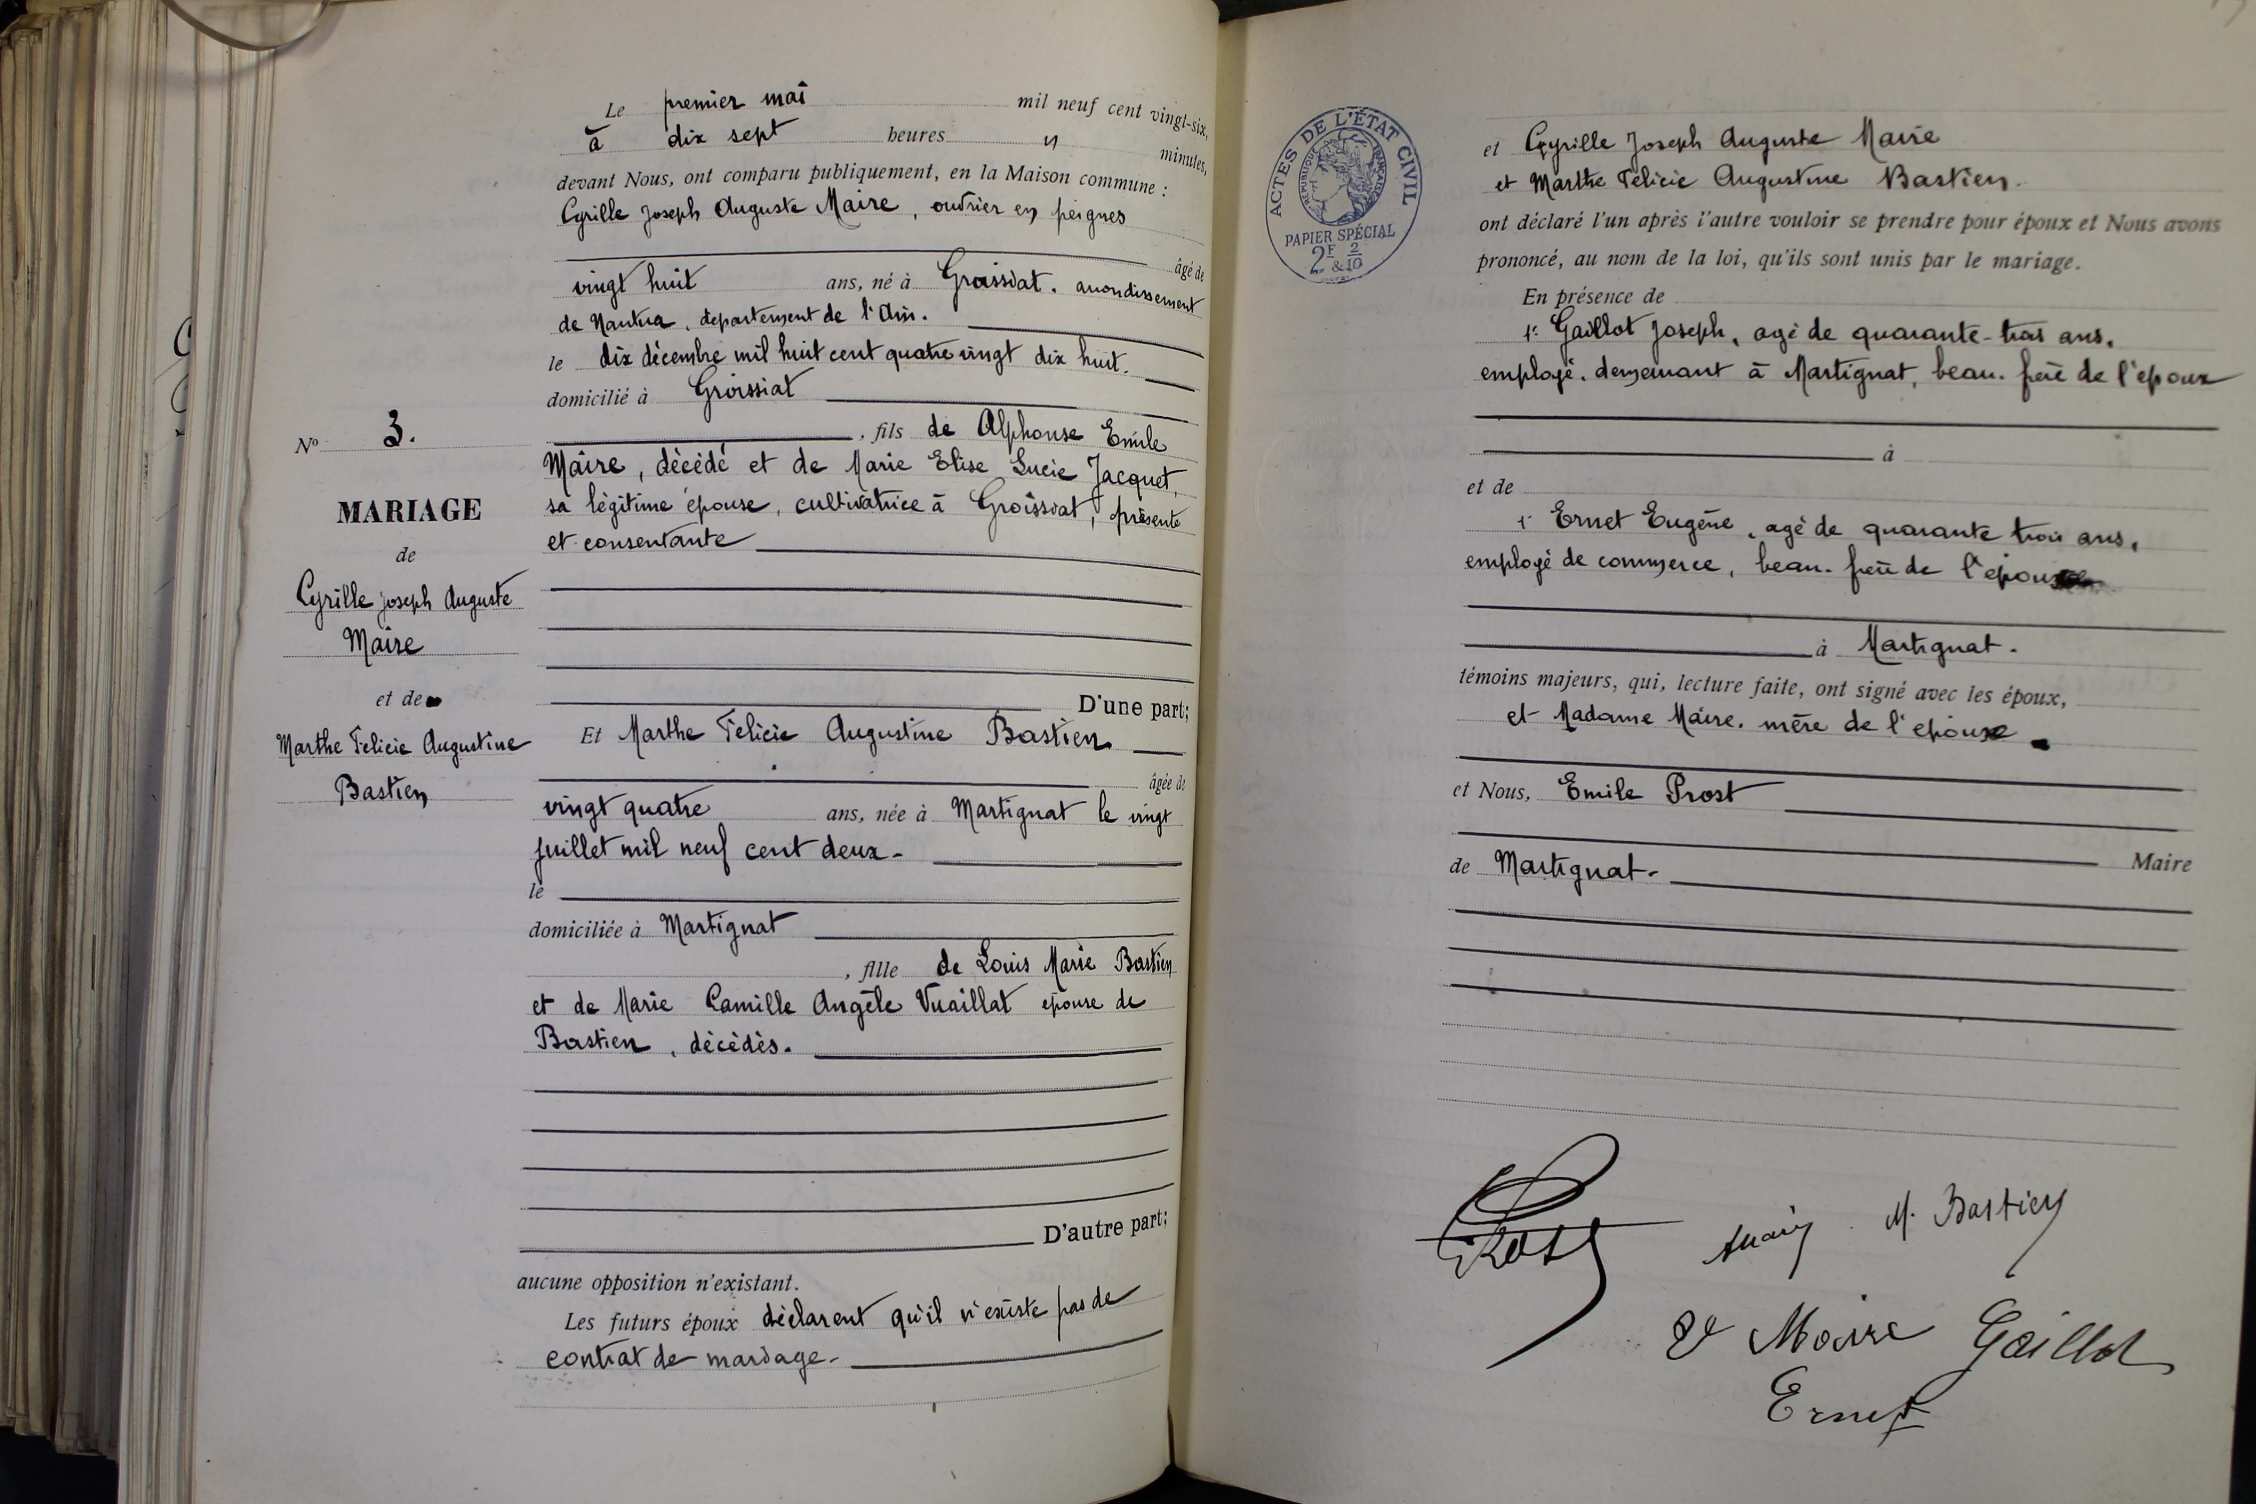 Le premier mai mil neuf cent vingt-six,
à dix sept heures " minutes,
devant Nous, ont comparu publiquement, en la Maison commune :
Cyrille Joseph Auguste Maire, ouvrier en peignes
âgé de
vingt huit ans, né à Groissiat. arrondissement
de Nantua, département de l'Ain.
le dix décembre mil huit cent quatre vingt dix huit.
domicilié à Groissiat
, fils de Alphonse Emile
Maire, décédé et de Marie Elise Lucie Jacquet,
sa légitime épouse, cultivatrice à Groissiat, présente
et consentante
D'une part;
Et Marthe Félicie Augustine Bastien
âgée de
vingt quatre ans, née à Martignat le vingt
juillet mil neuf cent deux.
le
domiciliée à Martignat
, fille de Louis Marie Bastien
et de Marie Camille Angèle Vuaillat épouse de
Bastien, décédés.
D'autre part;
aucune opposition n'existant.
Les futurs époux déclarent qu'il n'existe pas de
contrat de mariage.
N° 3.
MARIAGE
de
Cyrille Joseph Auguste
Maire
et de
Marthe Felicie Augustine
Bastien
ACTES DE L'ÉTAT CIVIL
RÉPUBLIQUE FRANÇAISE
PAPIER SPÉCIAL
2F & 2/10
et Cyrille Joseph Auguste Maire
et Marthe Félicie Augustine Bastien.
ont déclaré l'un après l'autre vouloir se prendre pour époux et Nous avons
prononcé, au nom de la loi, qu'ils sont unis par le mariage.
En présence de
1° Gaillot Joseph, agé de quarante-trois ans,
employé. demeurant à Martignat, beau-frère de l'epoux
à
et de
Ernet Eugène, agé de quarante trois ans,
employé de commerce, beau-frère de
à Martignat.
témoins majeurs, qui, lecture faite, ont signé avec les époux,
et Madame Maire. mère de
et Nous, Emile Prost
Maire
de Martignat.
Prost
M. Bastien
Maire Gaillot
Ernet